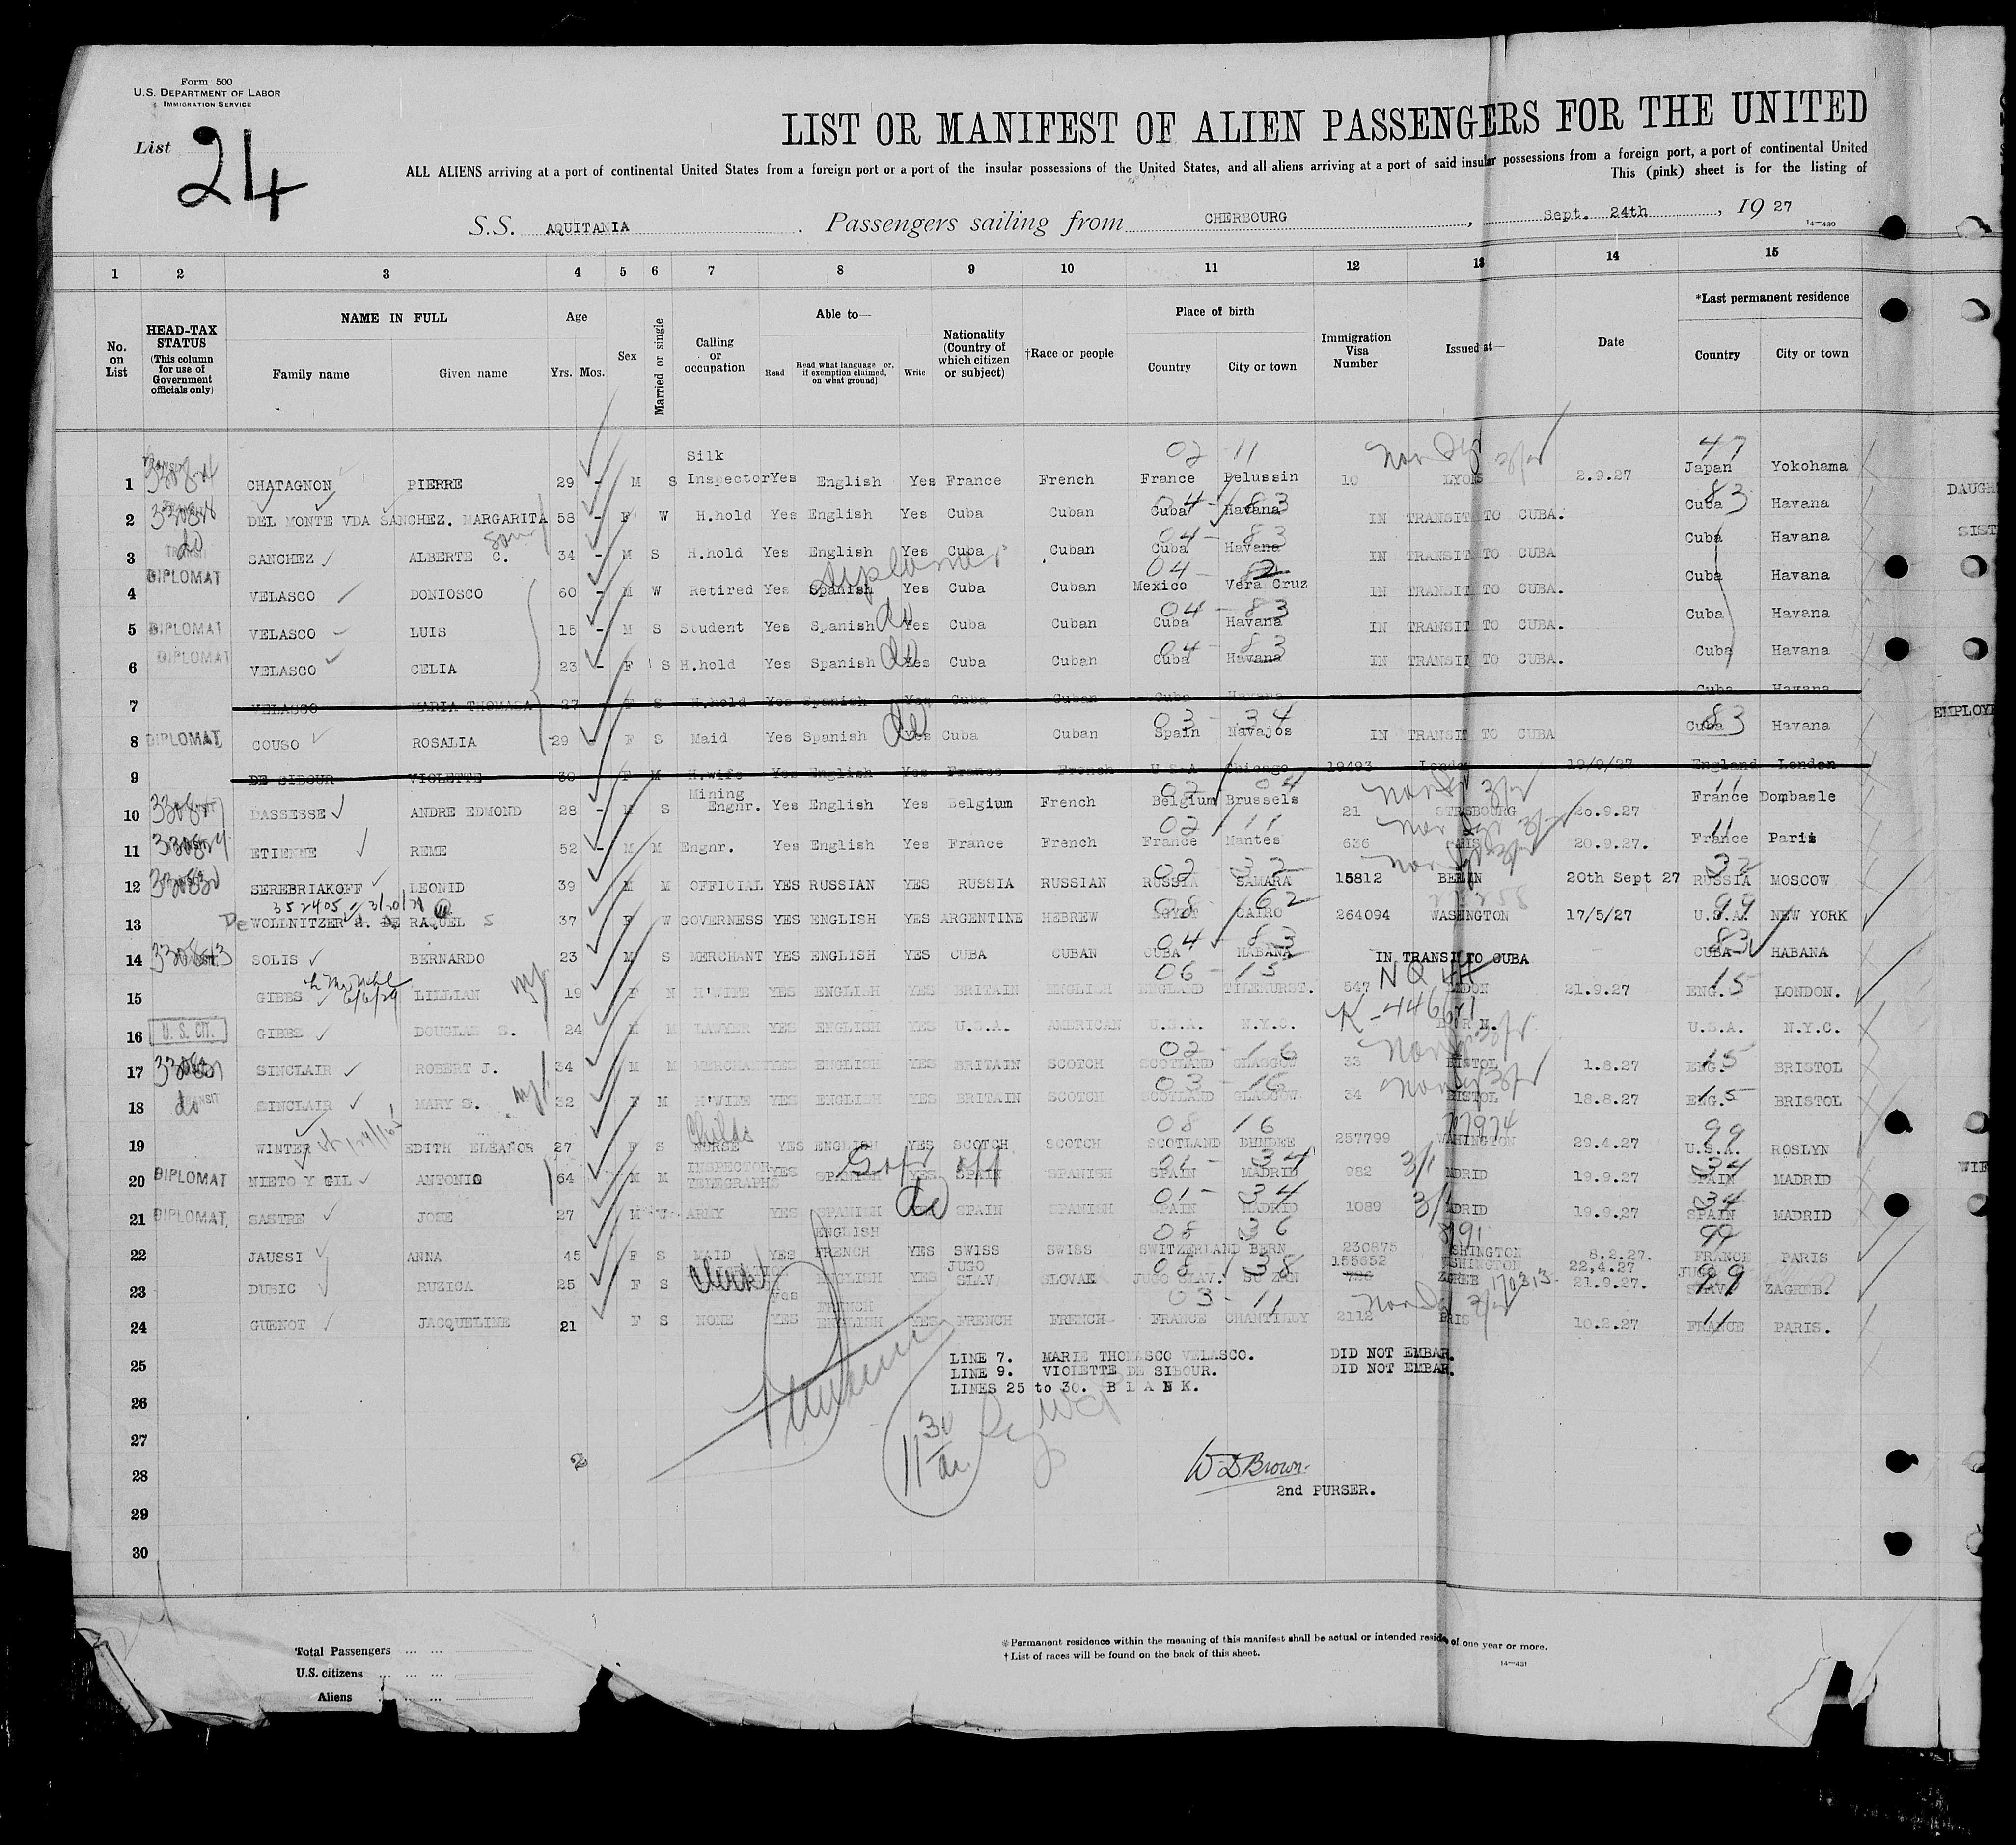 Form 500
U.S. DEPARTMENT OF LABOR
IMMIGRATION SERVICE
List 24
LIST OR MANIFEST OF ALIEN PASSENGERS FOR THE UNITED
ALL ALIENS arriving at a port of continental United States from a foreign port or a port of the insular possessions of the United States, and all aliens arriving at a port of said insular possessions from a foreign port, a port of continental United
This (pink) sheet is for the listing of
S.S. AQUITANIA. Passengers sailing from CHERBOURG, Sept. 24th, 1927
14-430
1 2 3 4 5 6 7 8 9 10 11 12 13 14 15
No. on List
HEAD-TAX STATUS (This column for use of Government officials only)
NAME IN FULL Family name Given name
Age Yrs. Mos.
Sex
Married or single
Calling or occupation
Able to— Read Read what language or, if exemption claimed, on what ground] Write
Nationality (Country of which citizen or subject)
†Race or people
Place of birth Country City or town
Immigration Visa Number
Issued at—
Date
*Last permanent residence Country City or town
02 11 47
1 CHATAGNON PIERRE 29 - M S Silk Inspector Yes English Yes France French France Pelussin 10 LYONS 2.9.27 Japan Yokohama
04 - 83 83
2 DEL MONTE VDA SANCHEZ. MARGARITA 58 - F W H.hold Yes English Yes Cuba Cuban Cuba Havana IN TRANSIT TO CUBA. Cuba Havana
DAUGH
do son 04 - 83
3 SANCHEZ ALBERTE C. 34 - M S H.hold Yes English Yes Cuba Cuban Cuba Havana IN TRANSIT TO CUBA Cuba Havana
SIST
Diplomat 04 - 82
4 DIPLOMAT VELASCO DONIOSCO 60 - M W Retired Yes Spanish Yes Cuba Cuban Mexico Vera Cruz IN TRANSIT TO CUBA. Cuba Havana
do 04 - 83
5 DIPLOMAT VELASCO LUIS 15 - M S Student Yes Spanish Yes Cuba Cuban Cuba Havana IN TRANSIT TO CUBA. Cuba Havana
do 04 - 83
6 DIPLOMAT VELASCO CELIA 23 - F S H.hold Yes Spanish Yes Cuba Cuban Cuba Havana IN TRANSIT TO CUBA. Cuba Havana
7 VELASCO MARIA THOMASA 27 F S H.hold Yes Spanish Yes Cuba Cuban Cuba Havana Cuba Havana
do 03 - 34 83
8 DIPLOMAT COUSO ROSALIA 29 - F S Maid Yes Spanish Yes Cuba Cuban Spain Navajos IN TRANSIT TO CUBA Cuba Havana
EMPLOYE
9 DE SIBOUR VIOLETTE 30 F M H.wife Yes English Yes France French U S A Chicago 19493 London 19/9/27 England London
02 04 11
10 DASSESSE ANDRE EDMOND 28 - M S Mining Engnr. Yes English Yes Belgium French Belgium Brussels 21 STRSBOURG 20.9.27 France Dombasle
02 - 11 11
11 ETIENNE REME 52 - M M Engnr. Yes English Yes France French France Mantes 636 PARIS 20.9.27. France Paris
02 - 32 32
12 SEREBRIAKOFF LEONID 39 M M OFFICIAL YES RUSSIAN YES RUSSIA RUSSIAN RUSSIA SAMARA 15812 BERLIN 20th Sept 27 RUSSIA MOSCOW
352405 3/20/31 08 62 99
13 De WOLLNITZER RAQUEL S 37 F W GOVERNESS YES ENGLISH YES ARGENTINE HEBREW EGYPT CAIRO 264094 WASHINGTON 17/5/27 U.S.A. NEW YORK
04 83 83
14 SOLIS BERNARDO 23 M S MERCHANT YES ENGLISH YES CUBA CUBAN CUBA HABANA IN TRANSIT TO CUBA CUBA HABANA
06 - 15 NQ 15
15 GIBBS LILLIAN 19 F M H'WIFE YES ENGLISH YES BRITAIN ENGLISH ENGLAND TILEHURST. 547 LONDON 21.9.27 ENG. LONDON.
16 U. S. CIT. GIBBS DOUGLAS S. 24 M M LAWYER YES ENGLISH YES U.S.A. AMERICAN U.S.A. N.Y.C. U.S.A. N.Y.C.
02 - 16 15
17 SINCLAIR ROBERT J. 34 M M MERCHANT YES ENGLISH YES BRITAIN SCOTCH SCOTLAND GLASGOW 33 BRISTOL 1.8.27 ENG. BRISTOL
03 - 16 15
18 do SINCLAIR MARY S. 32 F M H'WIFE YES ENGLISH YES BRITAIN SCOTCH SCOTLAND GLASGOW 34 BRISTOL 18.8.27 ENG. BRISTOL
Childs 08 16 99
19 WINTER EDITH ELEANOR 27 F S NURSE YES ENGLISH YES SCOTCH SCOTCH SCOTLAND DUNDEE 257799 WASHINGTON 29.4.27 U.S.A. ROSLYN
Gov off 01 - 34 3/1 34
20 DIPLOMAT NIETO Y GIL ANTONIO 64 M M INSPECTOR TELEGRAPHS YES SPANISH YES SPAIN SPANISH SPAIN MADRID 982 MADRID 19.9.27 SPAIN MADRID
WIF
do 01 - 34 3/1 34
21 DIPLOMAT. SASTRE JOSE 27 M ARMY YES SPANISH SPAIN SPANISH SPAIN MADRID 1089 MADRID 19.9.27 SPAIN MADRID
08 - 36 99
22 JAUSSI ANNA 45 F S MAID YES ENGLISH FRENCH YES SWISS SWISS SWITZERLAND BERN 230875 WASHINGTON 8.2.27. FRANCE PARIS
Clerk 08 38 155652 WASHINGTON 22.4.27 99
23 DUSIC RUZICA 25 F S Yes ENGLISH YES JUGO SLAV SLOVAK JUGO SLAV. ZAGREB 21.9.27. JUGO SLAV. ZAGREB.
03 - 11 11
24 GUENOT JACQUELINE 21 F S NONE YES FRENCH ENGLISH YES FRENCH FRENCH FRANCE CHANTILLY 2112 PARIS 10.2.27 FRANCE PARIS.
25 LINE 7. MARIE THOMASCO VELASCO. DID NOT EMBAR.
LINE 9. VIOLETTE DE SIBOUR. DID NOT EMBAR.
26 LINES 25 to 30. B L A N K.
27
28 W D Brown
2nd PURSER.
29
30
Total Passengers
U.S. citizens
Aliens
*Permanent residence within the meaning of this manifest shall be actual or intended residence of one year or more.
†List of races will be found on the back of this sheet.
14-431